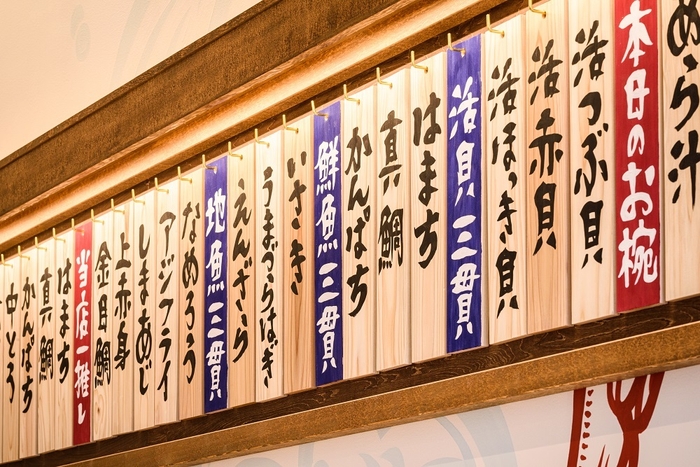 あら汁
本日のお椀
活つぶ貝
活赤貝
活ほっき貝
活貝三貫
はまち
真鯛
かんぱち
鮮魚三貫
いさき
うまづらはぎ
えんざら
地魚三貫
なめろう
アジフライ
しまあじ
上赤身
金目鯛
当店一推し
はまち
真鯛
かんぱち
中とろ